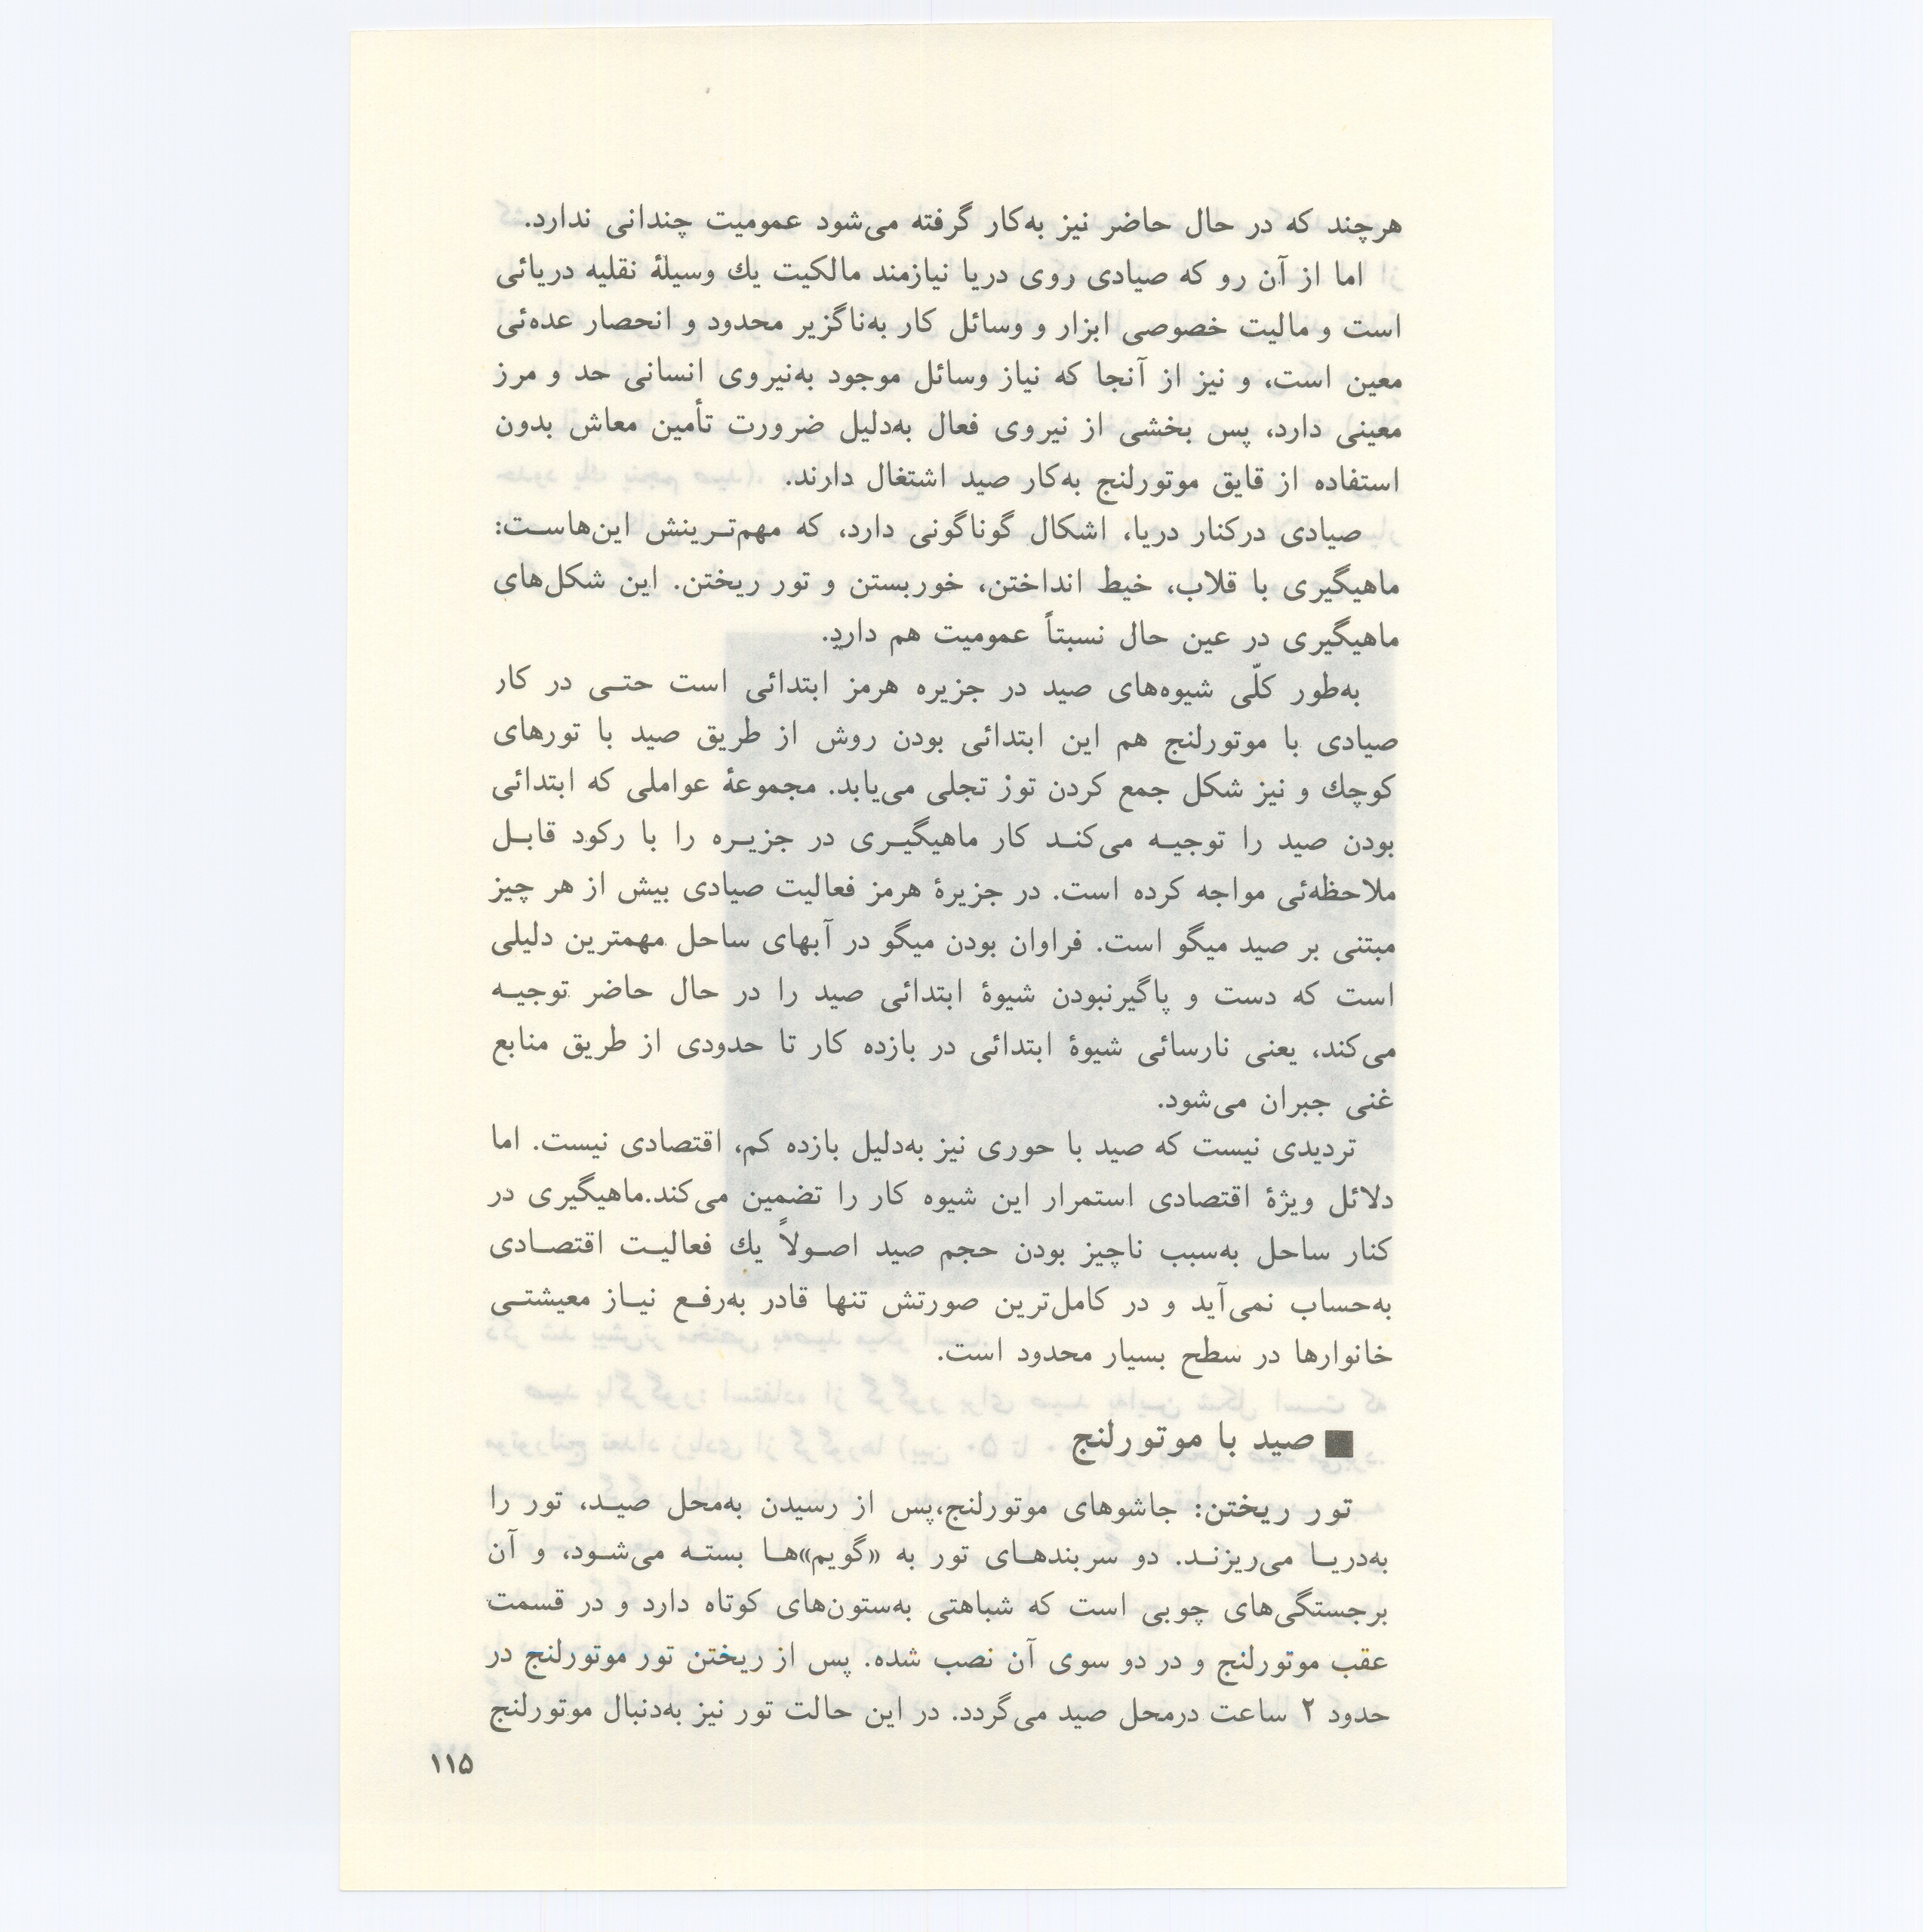 هرچند که در حال حاضر نیز به‌کار گرفته می‌شود عمومیت چندانی ندارد.
اما از آن رو که صیادی روی دریا نیازمند مالکیت یك وسیلهٔ نقلیه دریائی
است و مالیت خصوصی ابزار و وسائل کار به‌ناگزیر محدود و انحصار عده‌ئی
معین است، و نیز از آنجا که نیاز وسائل موجود به‌نیروی انسانی حد و مرز
معینی دارد، پس بخشی از نیروی فعال به‌دلیل ضرورت تأمین معاش بدون
استفاده از قایق موتورلنج به‌کار صید اشتغال دارند.
صیادی درکنار دریا، اشکال گوناگونی دارد، که مهم‌تـرینش این‌هاسـت:
ماهیگیری با قلاب، خیط انداختن، خوربستن و تور ریختن. این شکل‌های
ماهیگیری در عین حال نسبتاً عمومیت هم دارد.
به‌طور کلّی شیوه‌های صید در جزیره هرمز ابتدائی است حتـی در کار
صیادی با موتورلنج هم این ابتدائی بودن روش از طریق صید با تورهای
کوچك و نیز شکل جمع کردن توز تجلی می‌یابد. مجموعهٔ عواملی که ابتدائی
بودن صید را توجیـه می‌کنـد کار ماهیگیـری در جزیـره را با رکود قابـل
ملاحظه‌ئی مواجه کرده است. در جزیرهٔ هرمز فعالیت صیادی بیش از هر چیز
مبتنی بر صید میگو است. فراوان بودن میگو در آبهای ساحل مهمترین دلیلی
است که دست و پاگیرنبودن شیوهٔ ابتدائی صید را در حال حاضر توجیـه
می‌کند، یعنی نارسائی شیوهٔ ابتدائی در بازده کار تا حدودی از طریق منابع
غنی جبران می‌شود.
تردیدی نیست که صید با حوری نیز به‌دلیل بازده کم، اقتصادی نیست. اما
دلائل ویژهٔ اقتصادی استمرار این شیوه کار را تضمین می‌کند.ماهیگیری در
کنار ساحل به‌سبب ناچیز بودن حجم صید اصـولاً یك فعالیـت اقتصـادی
به‌حساب نمی‌آید و در کامل‌ترین صورتش تنها قادر به‌رفـع نیـاز معیشتـی
خانوارها در سطح بسیار محدود است.
■ صید با موتورلنج
تور ریختن: جاشوهای موتورلنج،پس از رسیدن به‌محل صیـد، تور را
به‌دریـا می‌ریزنـد. دو سربندهـای تور به «گویم»هـا بستـه می‌شـود، و آن
برجستگی‌های چوبی است که شباهتی به‌ستون‌های کوتاه دارد و در قسمت
عقب موتورلنج و در دو سوی آن نصب شده. پس از ریختن تور موتورلنج در
حدود ۲ ساعت درمحل صید می‌گردد. در این حالت تور نیز به‌دنبال موتورلنج
۱۱۵